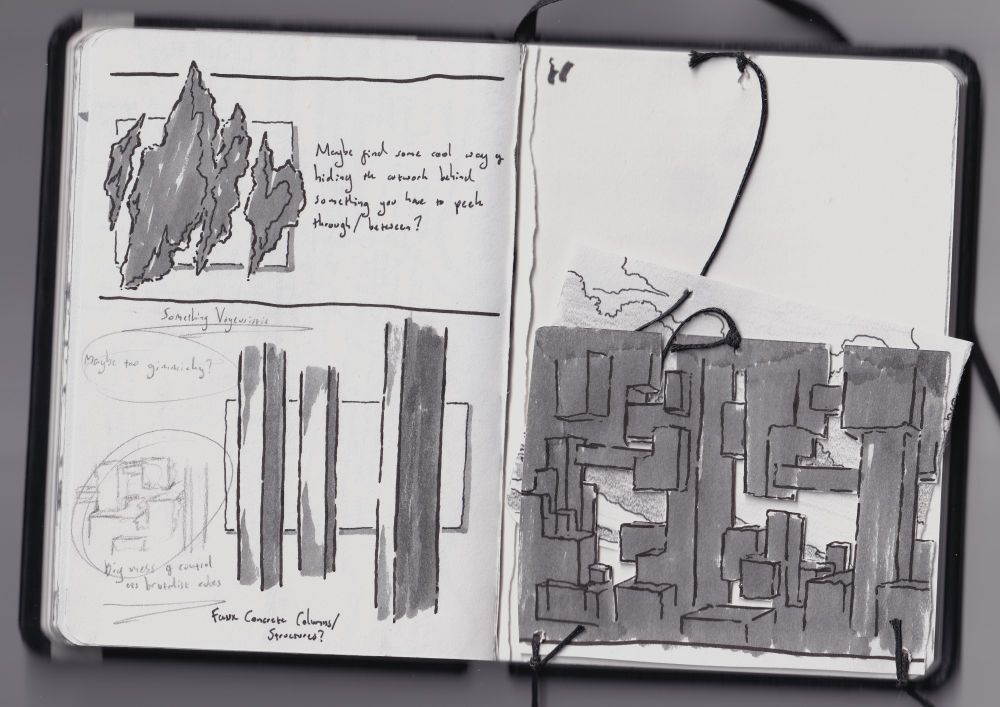 Maybe find some cool way of
hiding the artwork behind
something you have to peek
through/between?
Something Voyeuristic
Maybe too gimmicky?
Big mess of
brutalist cubes
Faux Concrete Columns/
Structures?